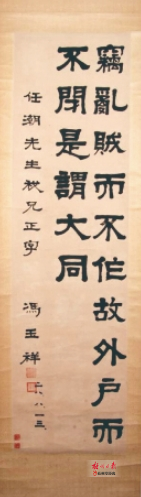 竊亂賊而不作故外户而
不閉是謂大同
任潮先生我兄正字
馮玉祥